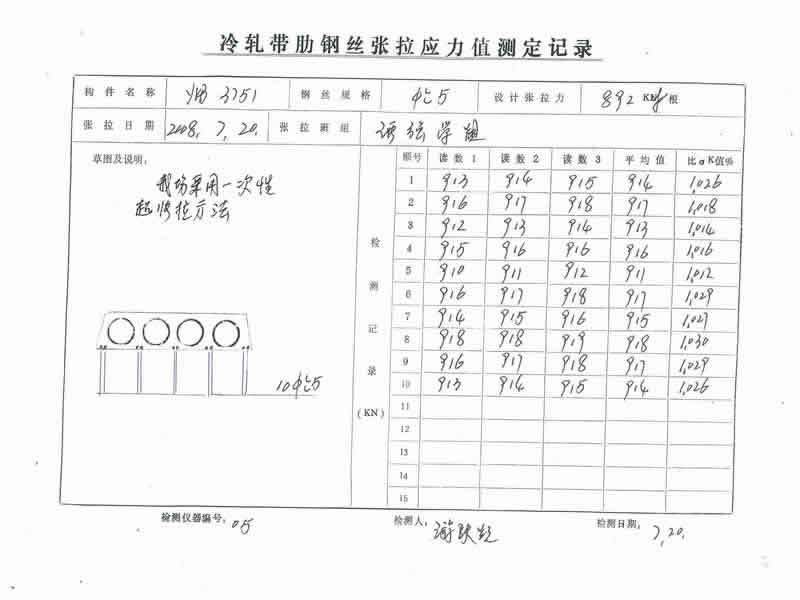 冷轧带肋钢丝张拉应力值测定记录
构件名称 YB 3751 钢丝规格 设计张拉力 892 KN/根
张拉日期 2008.7.20. 张拉班组
草图及说明:
我场采用一次性
超张拉方法
10
检测记录(KN)
顺号 读数1 读数2 读数3 平均值 比σK值%
1 913 914 915 914 1.026
2 916 917 918 917 1.018
3 912 913 914 913 1.014
4 915 916 916 916 1.016
5 910 911 912 911 1.012
6 916 917 918 917 1.029
7 914 915 916 915 1.027
8 918 918 919 918 1.030
9 916 917 918 917 1.029
10 913 914 915 914 1.026
11
12
13
14
15
检测仪器编号: 05 检测人: 检测日期: 7.20.